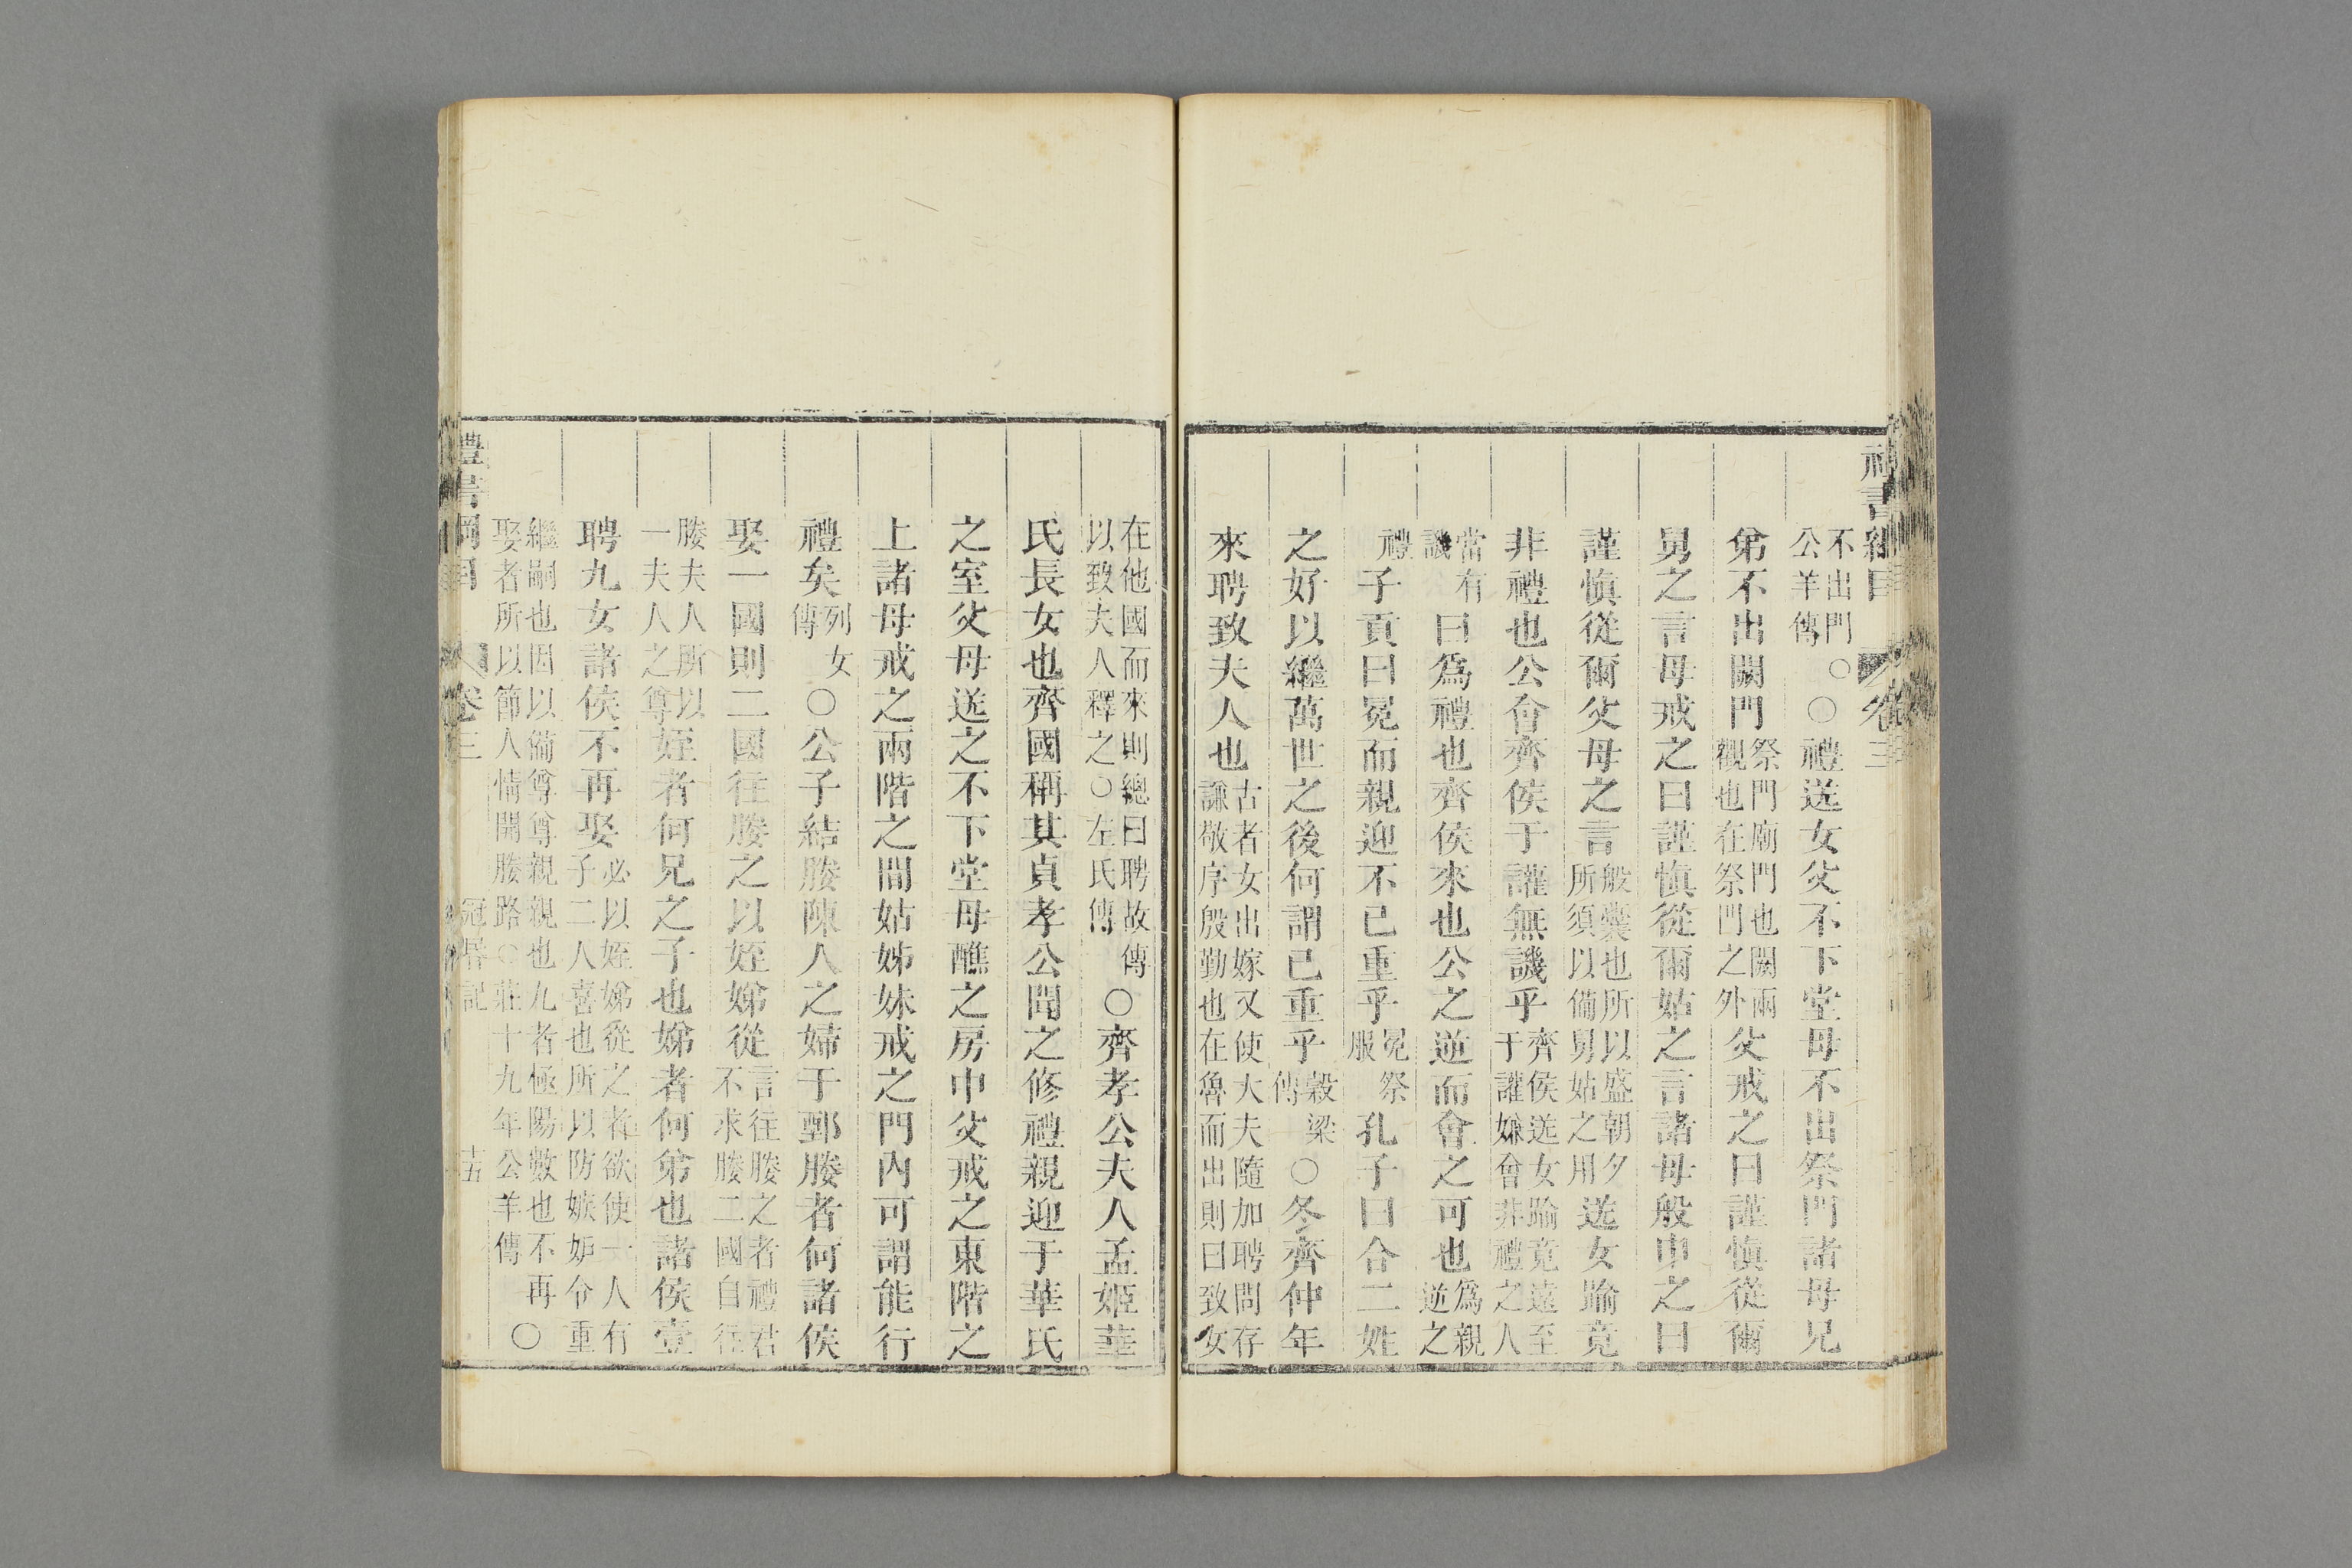 禮書綱目 卷三
不出門○
公羊傳
○禮送女父不下堂母不出祭門諸母兄
弟不出闕門
祭門廟門也闕兩
觀也在祭門之外
父戒之曰謹慎從爾
舅之言母戒之曰謹慎從爾姑之言諸母般申之曰
謹慎從爾父母之言
般鞶也所以盛朝夕
所須以備舅姑之用
送女踰竟
非禮也公會齊侯于讙無譏乎
齊侯送女踰竟遠至
于讙嫌會非禮之人
當有
譏
曰爲禮也齊侯來也公之逆而會之可也
爲親
逆之
禮
子貢曰冕而親迎不已重乎
冕祭
服
孔子曰合二姓
之好以繼萬世之後何謂已重乎
穀梁
傳
○冬齊仲年
來聘致夫人也
古者女出嫁又使大夫隨加聘問存
謙敬序殷勤也在魯而出則曰致女
在他國而來則總曰聘故傳
以致夫人釋之○左氏傳
○齊孝公夫人孟姬華
氏長女也齊國稱其貞孝公聞之修禮親迎于華氏
之室父母送之不下堂母醮之房中父戒之東階之
上諸母戒之兩階之間姑姊妹戒之門內可謂能行
禮矣
列女
傳
○公子結媵陳人之婦于鄄媵者何諸侯
娶一國則二國往媵之以姪娣從
言往媵之者禮君
不求媵二國自往
媵夫人所以
一夫人之尊
姪者何兄之子也娣者何弟也諸侯壹
聘九女諸侯不再娶
必以姪娣從之者欲使一人有
子二人喜也所以防嫉妒令重
繼嗣也因以備尊尊親親也九者極陽數也不再
娶者所以節人情開媵路○莊十九年公羊傳
○
禮書綱目 卷三 冠昏記 十五